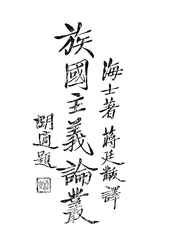 海士著 蔣廷黻譯
族國主義論叢
胡適題